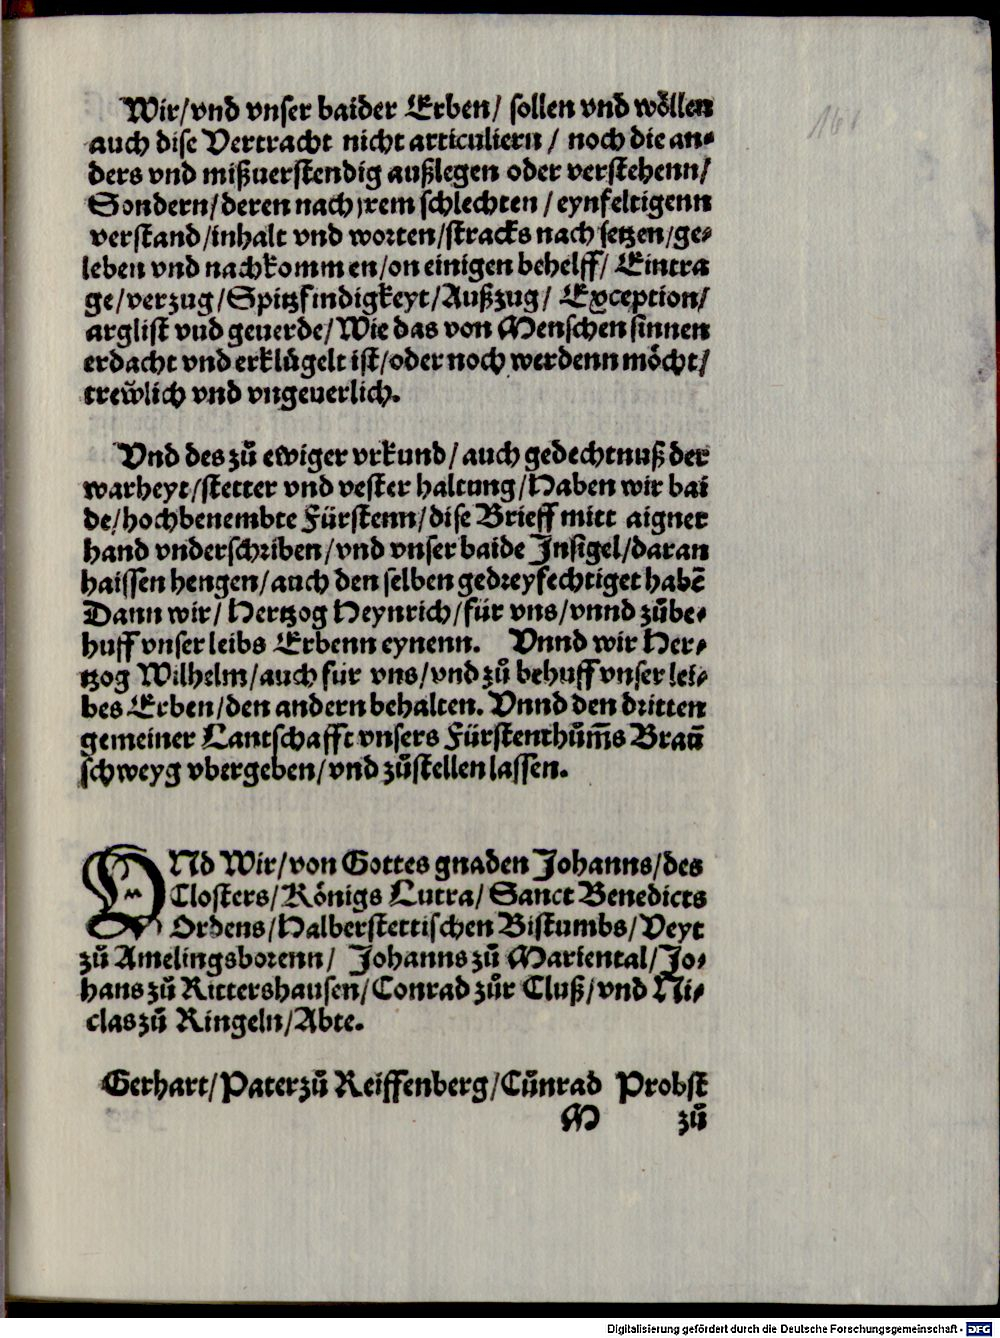 Wir/vnd vnser baider Erben/ sollen vnd wöllen
auch dise Vertracht nicht articuliern / noch die an⸗
ders vnd mißuerstendig außlegen oder verstehenn/
Sondern/deren nach jrem schlechten / eynfeltigenn
verstand/inhalt vnd worten/stracks nach setzen/ge⸗
leben vnd nachkomm en/on einigen behelff/ Eintra
ge/verzug/Spitzfindigkeyt/Außzug/ Exception/
arglist vud geuerde/Wie das von Menschen sinnen
erdacht vnd erklůgelt ist/oder noch werdenn möcht/
trew̃lich vnd vngeuerlich.
Vnd des zů ewiger vrkund/auch gedechtnuß der
warheyt/stetter vnd vester haltung/Haben wir bai
de/hochbenembte Fürstenn/dise Brieff mitt aigner
hand vnderschriben/vnd vnser baide Insigel/daran
haissen hengen/auch den selben gedreyfechtiget habẽ
Dann wir/ Hertzog Heynrich/für vns/vnnd zůbe⸗
huff vnser leibs Erbenn eynenn. Vnnd wir Her⸗
tzog Wilhelm/auch für vns/vnd zů behuff vnser lei⸗
bes Erben/den andern behalten. Vnnd den dritten
gemeiner Lantschafft vnsers Fürstenthům̃s Braũ
schweyg vbergeben/vnd zůstellen lassen.
VNd Wir/von Gottes gnaden Johanns/des
Closters/Königs Lutra/ Sanct Benedicts
Ordens/Halberstettischen Bistumbs/Veyt
zů Amelingsborenn/ Johanns zů Mariental/Jo⸗
hans zů Rittershausen/Conrad zůr Cluß/vnd Ni⸗
clas zů Ringeln/Abte.
Gerhart/Pater zů Reiffenberg/Cůnrad Probst
M zů
Digitalisierung gefördert durch die Deutsche Forschungsgemeinschaft - DFG